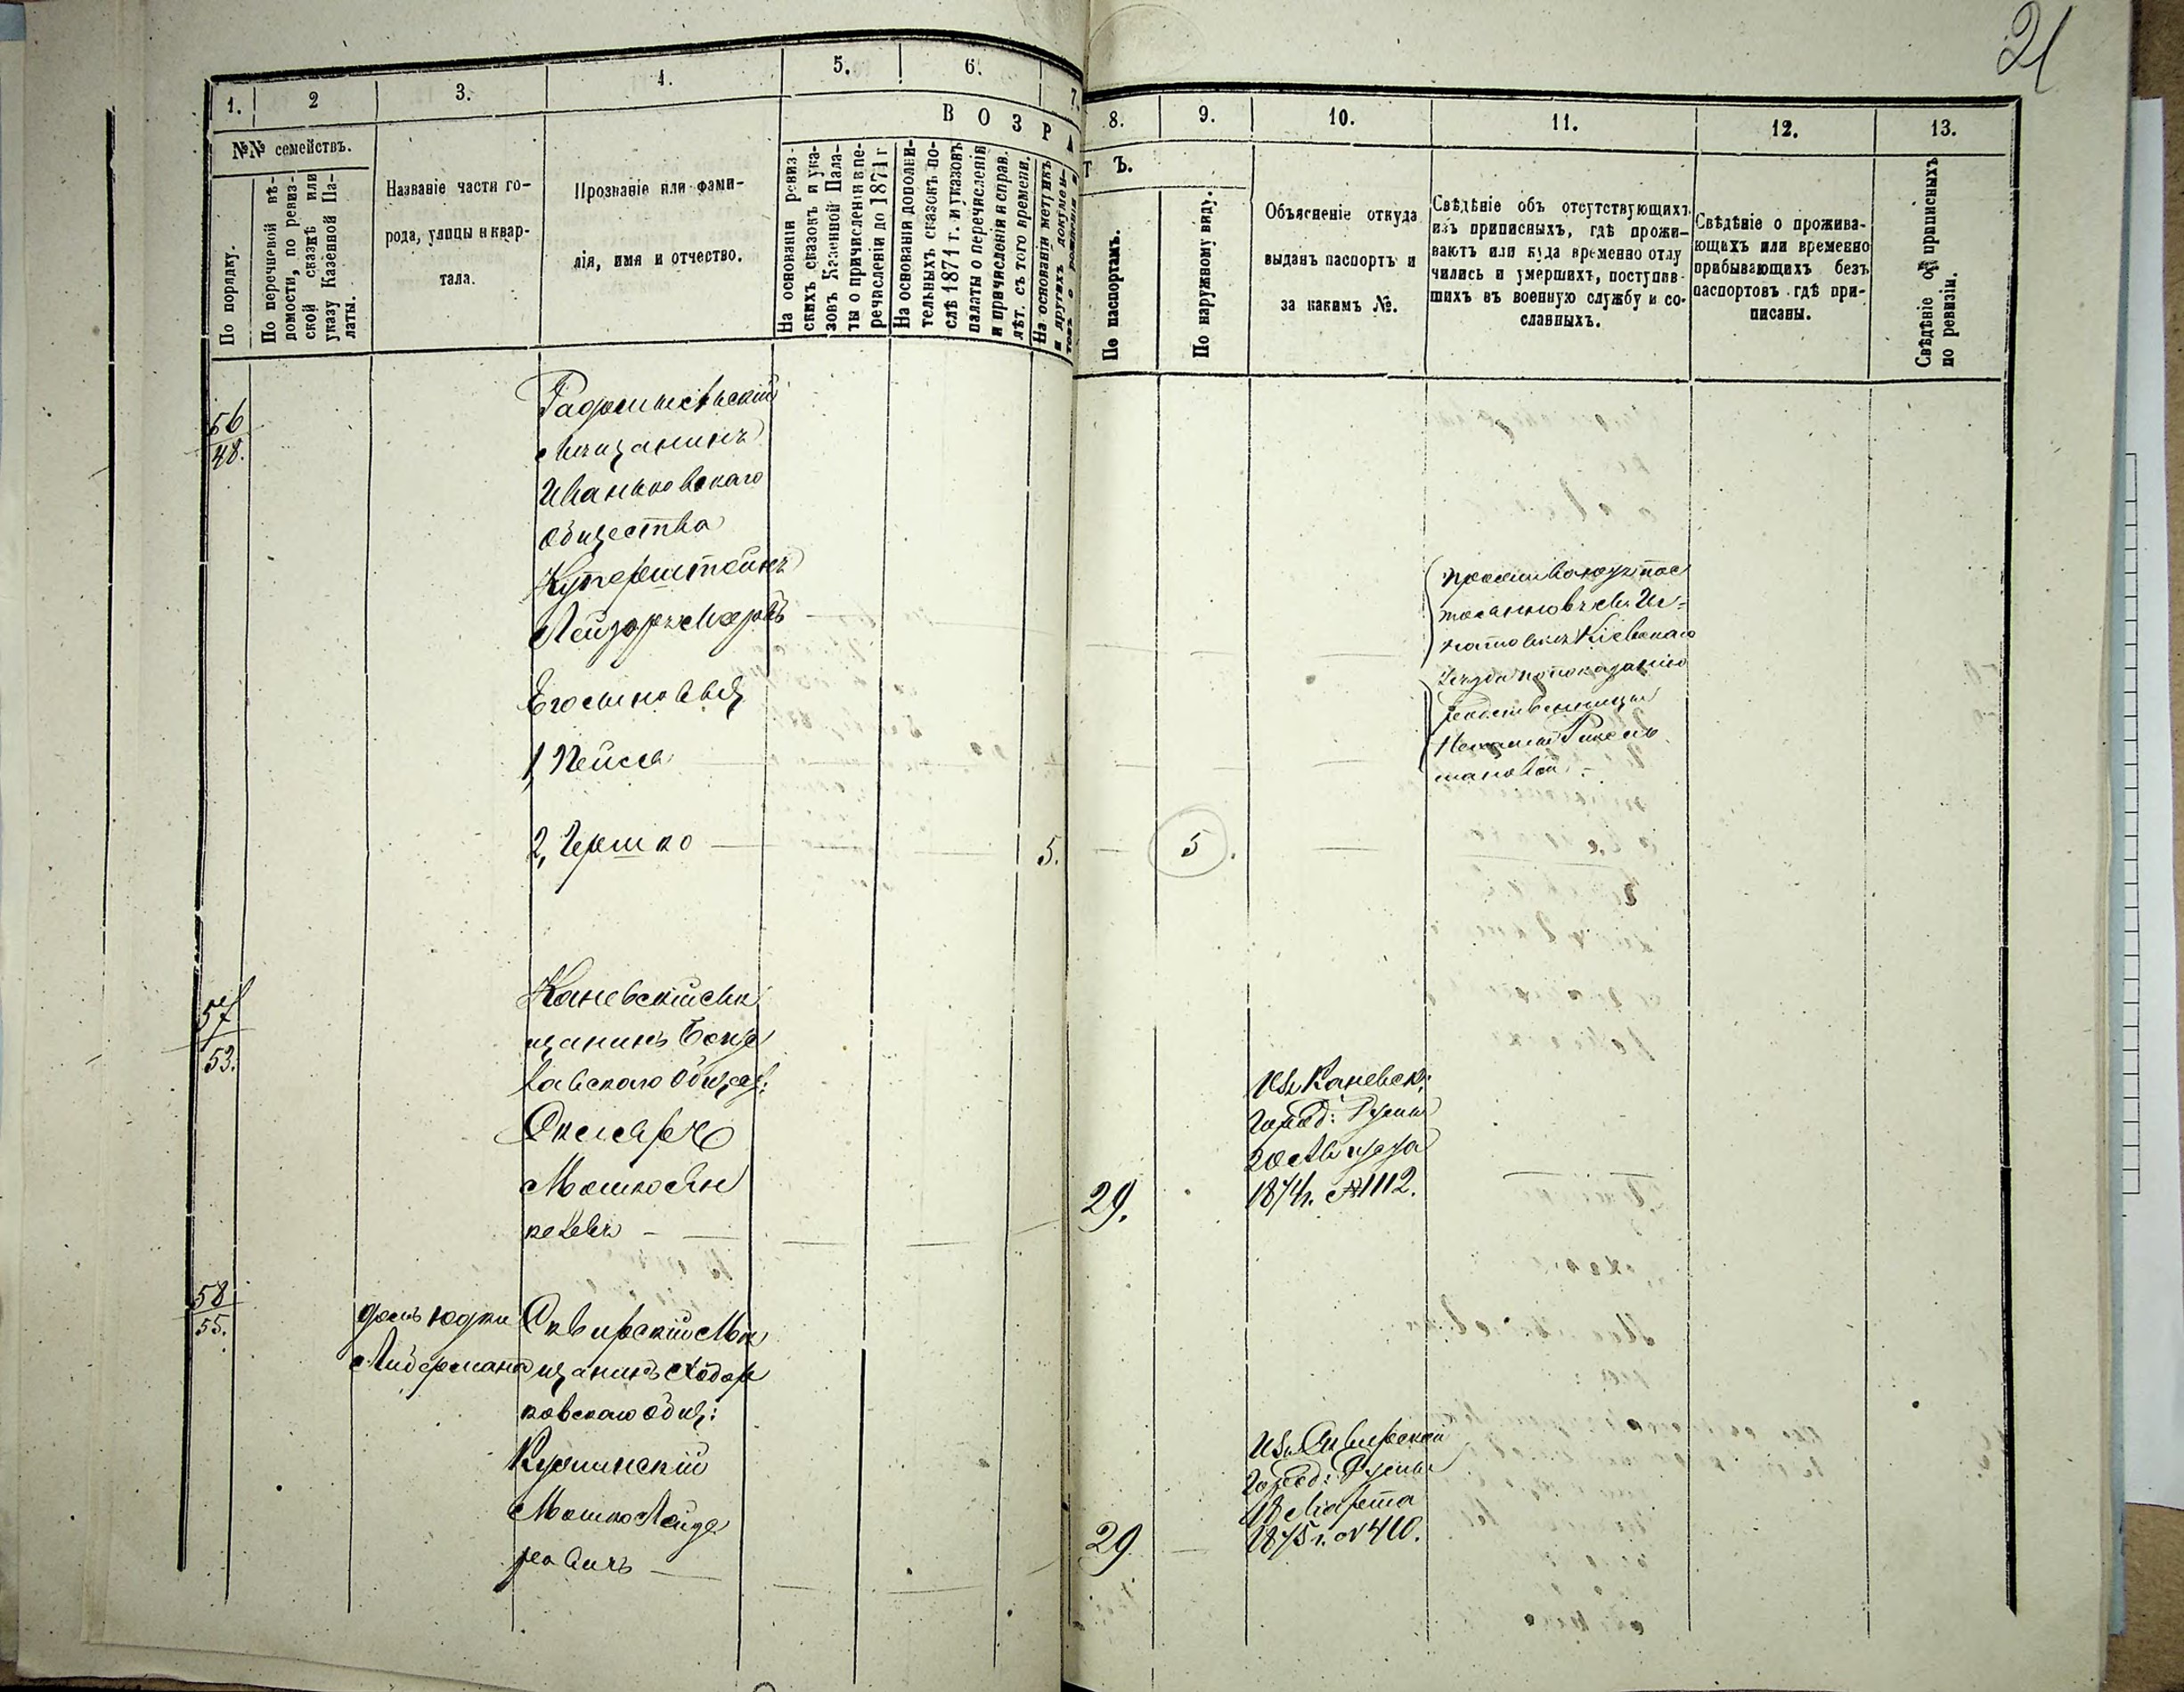 21
1.
2
3.
4.
5.
6.
7.
8.
9.
10.
11.
12.
13.
№№ семействъ.
В О З Р А
Т Ъ.
По порядку.
По перечневой вѣ-
домости, по ревиз-
ской сказкѣ или
указу Казенной Па-
латы.
Названіе части го-
рода, улицы и квар-
тала.
Прозваніе или фами-
лія, имя и отчество.
На основаніи ревиз-
скихъ сказокъ и ука-
зовъ Казенной Пала-
ты о причисленіи и пе-
речисленіи до 1871 г
На основаніи дополни-
тельныхъ сказокъ по-
слѣ 1871 г. и указовъ
палаты о перечисленіи
и причисленіи и справ.
лѣт. съ того времени.
На основаніи метрикъ
и другихъ докумен-
товъ о рожденіи
По паспортамъ.
По наружному виду.
Объясненіе откуда
выданъ паспортъ и
за какимъ №.
Свѣдѣніе объ отсутствующихъ
изъ приписныхъ, гдѣ прожи-
ваютъ или куда временно отлу
чились и умершихъ, поступив-
шихъ въ военную службу и со-
сланныхъ.
Свѣдѣніе о прожива-
ющихъ или временно
прибывающихъ безъ
паспортовъ гдѣ при-
писаны.
Свѣдѣніе о приписныхъ
по ревизіи.
56
48.
Радомысльскій
мѣщанинъ
Иваньковскаго
общества
Куперштейнъ
Лейзоръ
Его сыновья
1, Пейсса
2, Гершко
5.
5
Кіевскаго
уѣзда по показанію
родственницы
57
53.
Каневскій мѣ
щанинъ
лавскаго общес:
Скляръ
Мошко Ян
келевъ
29.
Изъ Каневск:
Город: Думы
20
1874 г. № 1112.
58
55.
домъ Юдки
Либермана
Сквирскій Мѣ
щанинъ Ходор
ковскаго общ:
Мошко Лейзе
ровичъ
29
Изъ Сквирской
Город: Думы
18 Марта
1875 г. № 410.